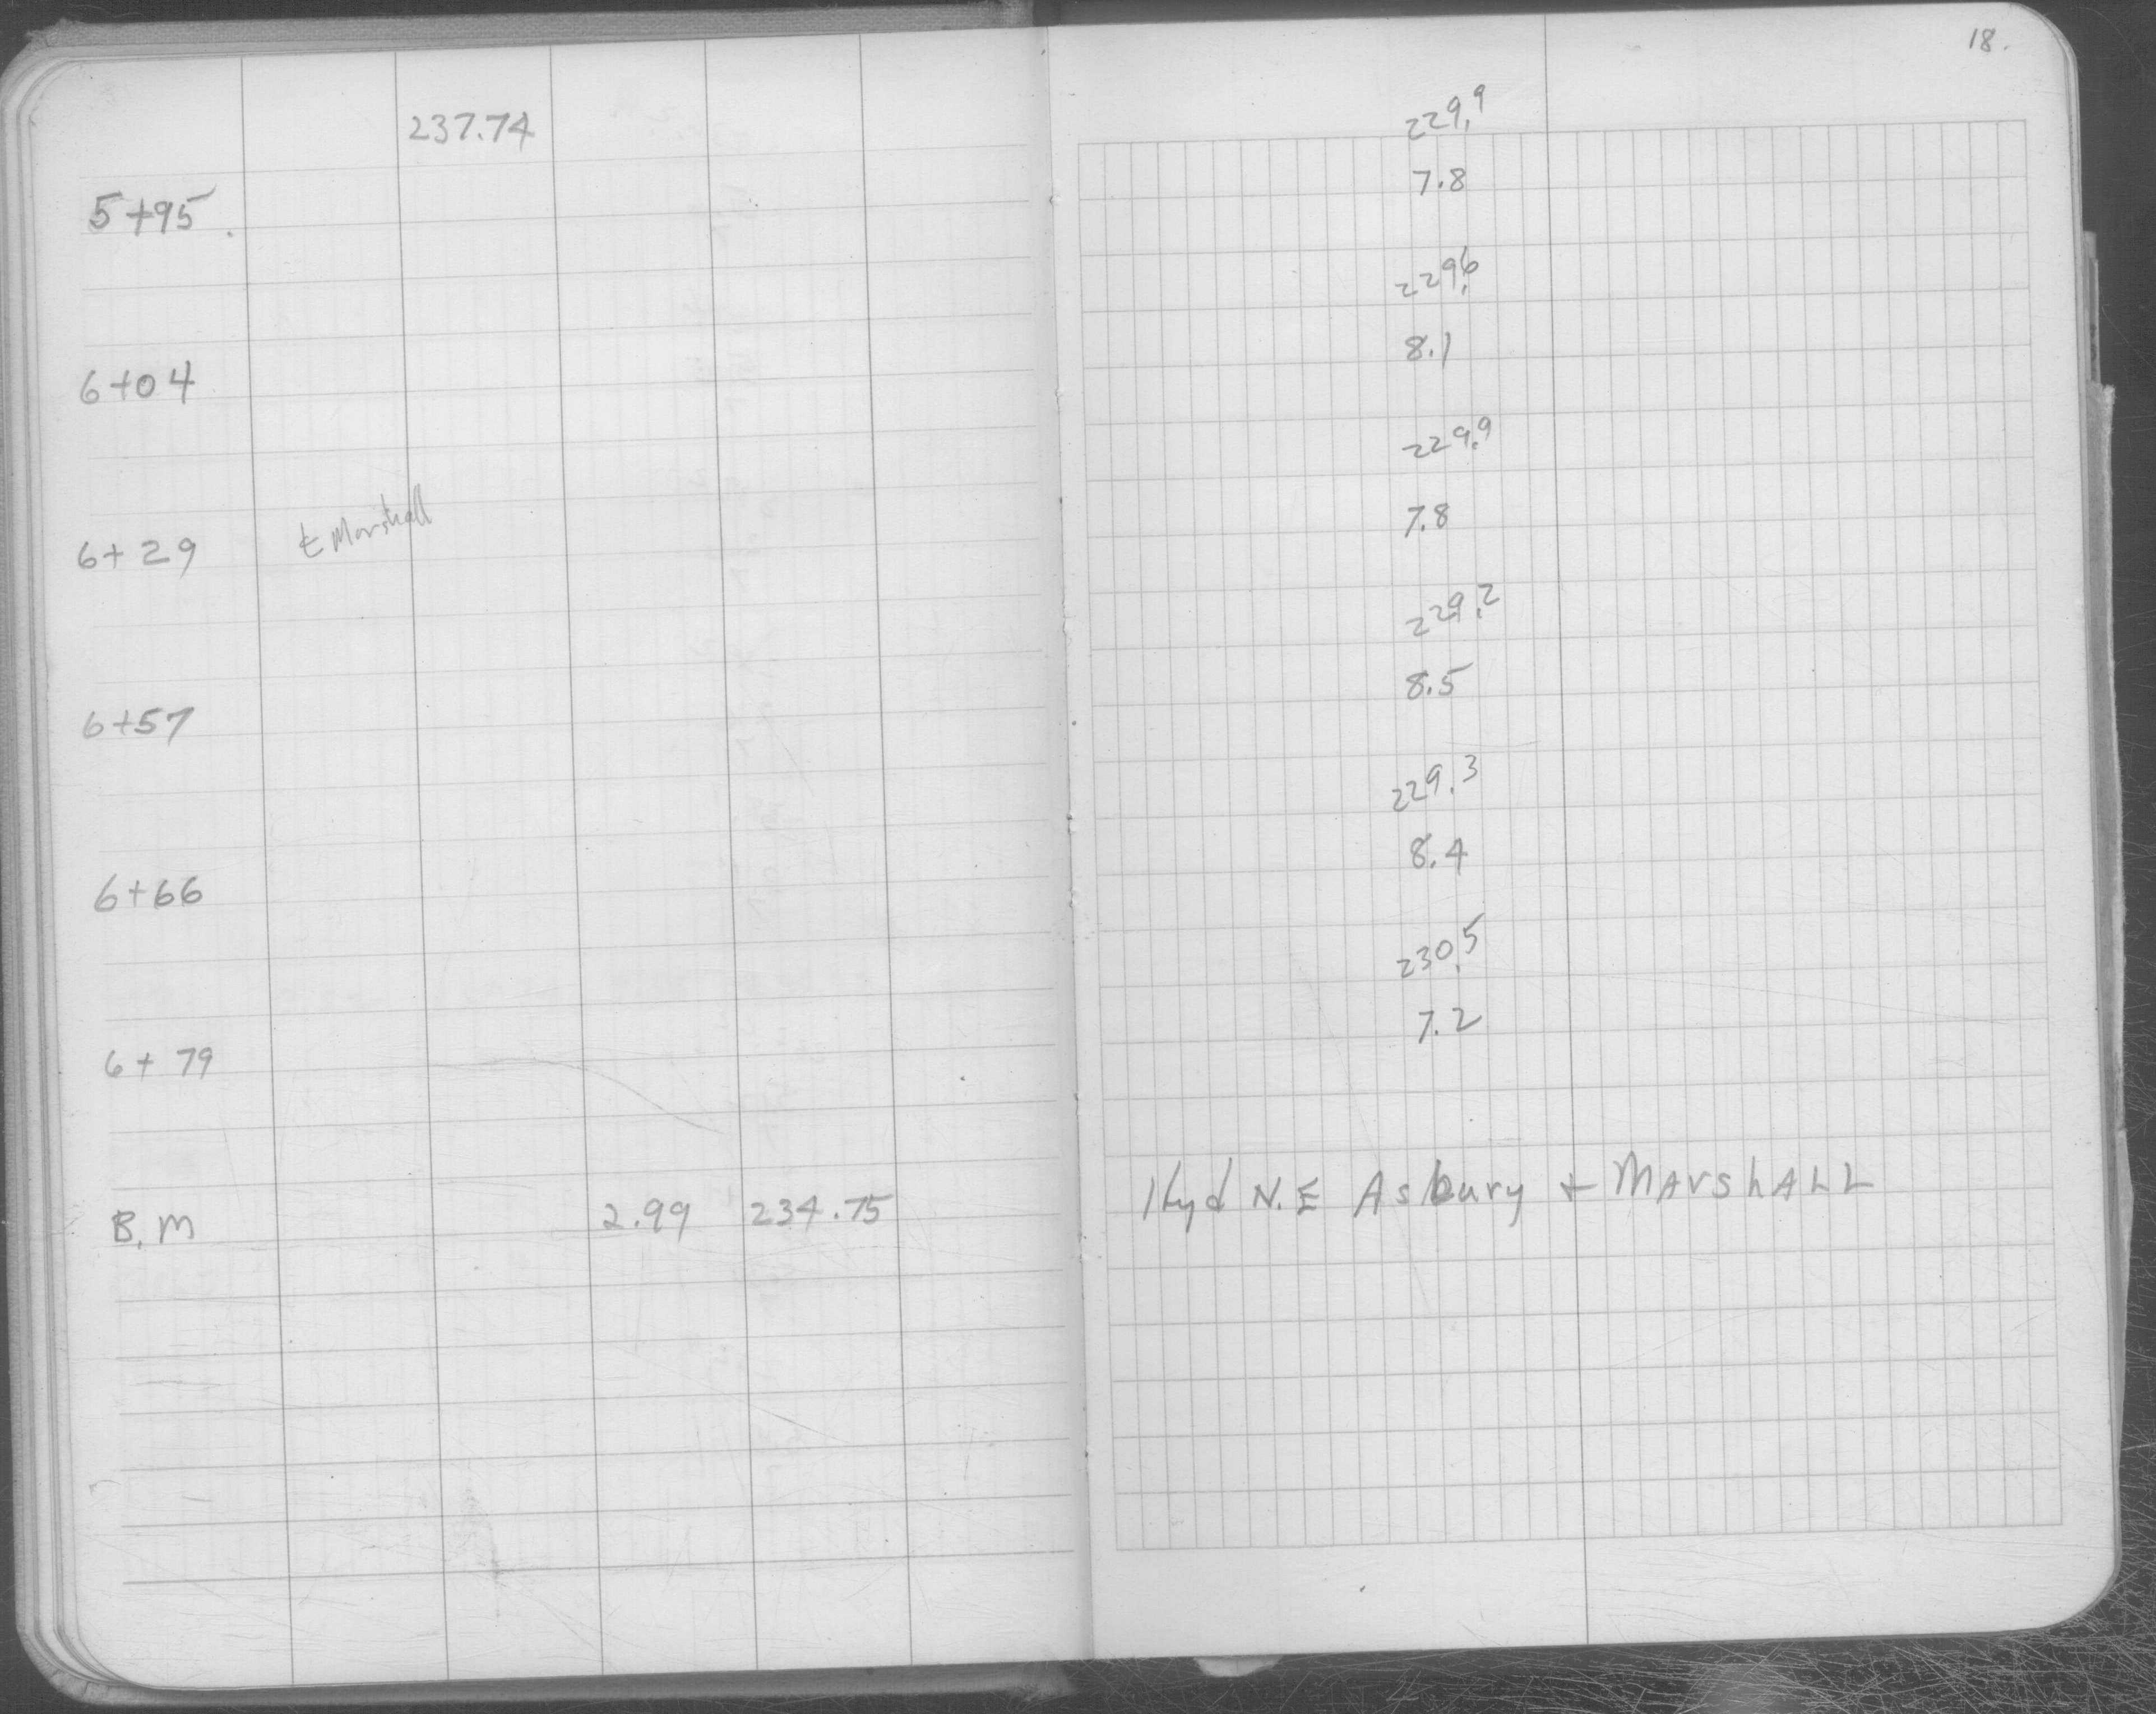 18.
237.74 229.9
5+95. 7.8
229.6
6+04 8.1
229.9
6+29 ℄ Marshall 7.8
229.2
6+57 8.5
229.3
6+66 8.4
230.5
6+79 7.2
B.M 2.99 234.75 Hyd N.E Asbury + MArshALL